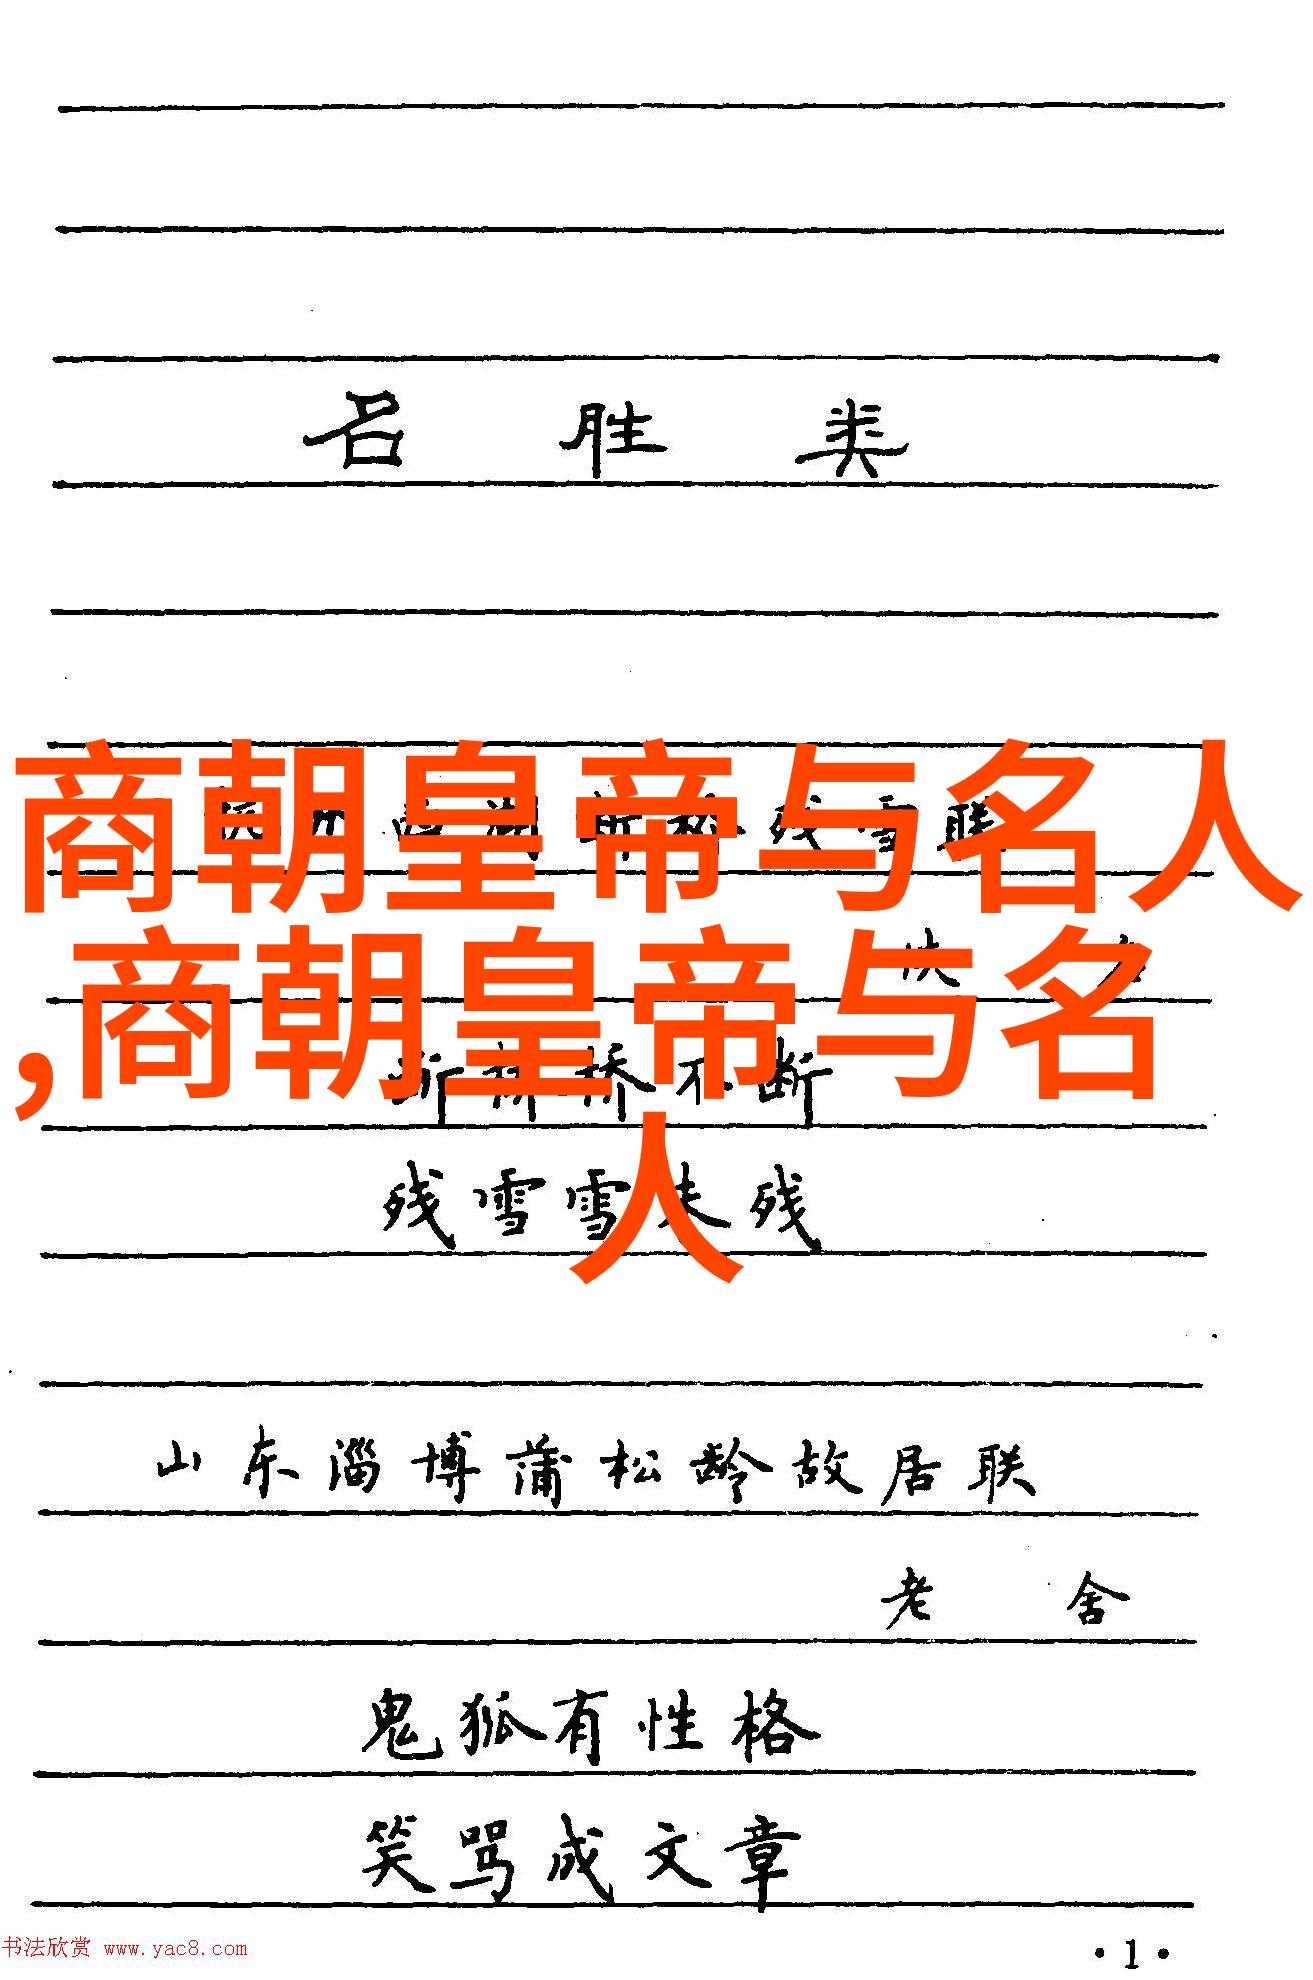 名胜类
商朝皇帝与名人
残雪联
,商朝皇帝与名
人
断桥桥不断
残雪雪未残
山东淄博蒲松龄故居联
老舍
鬼狐有性格
笑骂成文章
书法欣赏 www.yac8.com
·1·